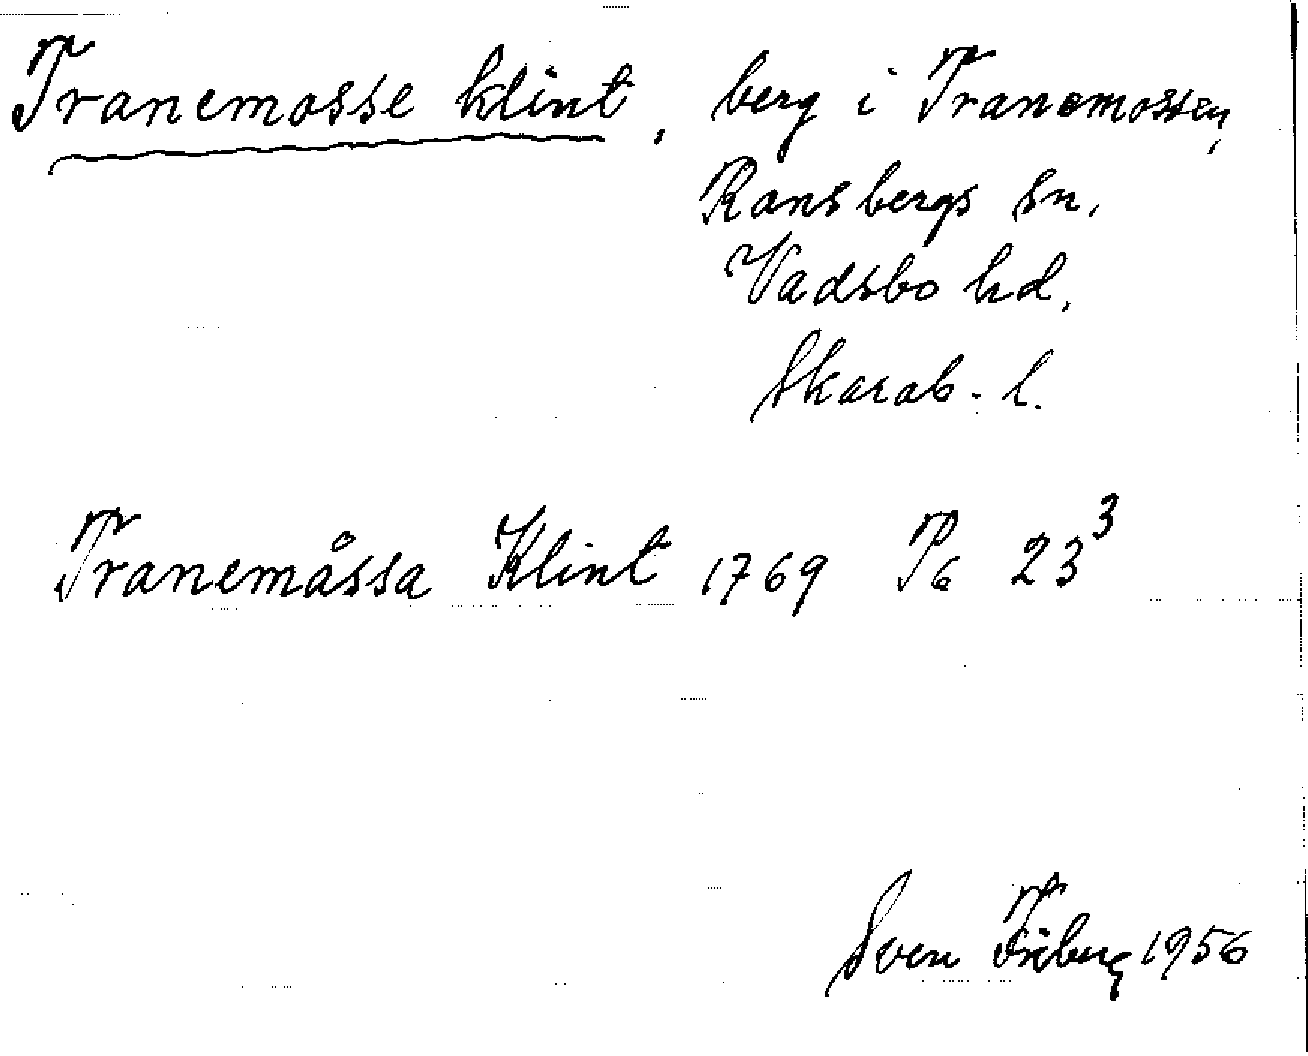 Tranemosse klint, berg i Tranemossen,
Ransbergs sn.
Vadsbo hd.
Skarab. l.
Tranemåssa Klint 1769 P6 23³
Sven Friberg 1956